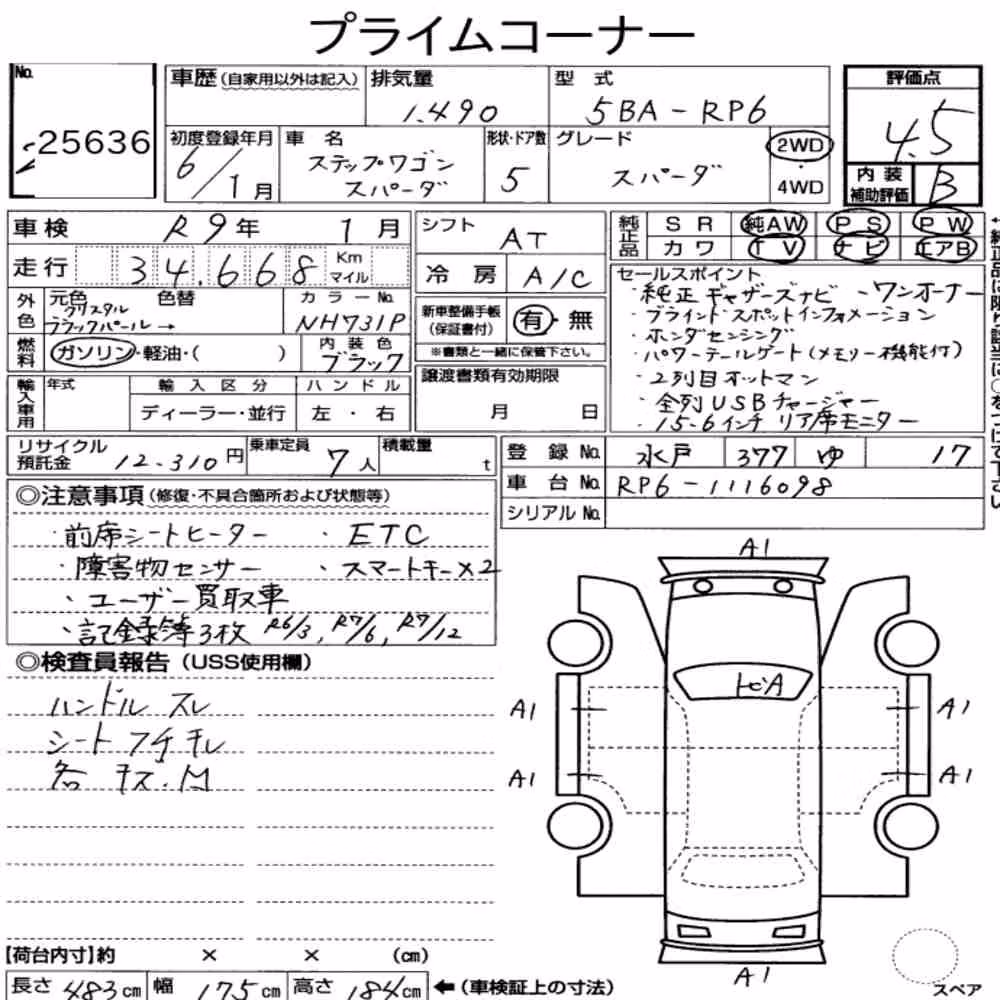 プライムコーナー
No. 25636
車歴(自家用以外は記入) 排気量 1.490 型式 5BA-RP6
初度登録年月 6/1月 車名 ステップワゴン スパーダ 形状・ドア数 5 グレード スパーダ 2WD・4WD
評価点 4.5
内装補助評価 B
車検 R9年 1月
走行 34,668 Km マイル
外色 元色 クリスタルブラックパール→ 色替 カラーNo. NH731P
燃料 ガソリン・軽油・( ) 内装色 ブラック
輸入車用 年式 輸入区分 ディーラー・並行 ハンドル 左・右
シフト AT
冷房 A/C
新車整備手帳(保証書付) 有・無
※書類と一緒に保管下さい。
譲渡書類有効期限 月 日
純正品 SR 純AW PS PW
カワ TV ナビ エアB
セールスポイント
・純正ギャザーズナビ ・ワンオーナー
・ブラインドスポットインフォメーション
・ホンダセンシング
・パワーテールゲート(メモリー機能付)
・2列目オットマン
・全列USBチャージャー
・15.6インチ リア席モニター
リサイクル預託金 12.310円 乗車定員 7人 積載量 t
登録No. 水戸 377 ゆ 17
車台No. RP6-1116098
シリアルNo.
◎注意事項(修復・不具合箇所および状態等)
・前席シートヒーター ・ETC
・障害物センサー ・スマートキー×2
・ユーザー買取車
・記録簿3枚 R6/3, R7/6, R7/12
◎検査員報告(USS使用欄)
ハンドル スレ
シート フチ
各 キズ.M
A1
トビA
A1 A1
A1 A1
A1
スペア
【荷台内寸】約 × × (cm)
長さ 483cm 幅 175cm 高さ 184cm ←(車検証上の寸法)